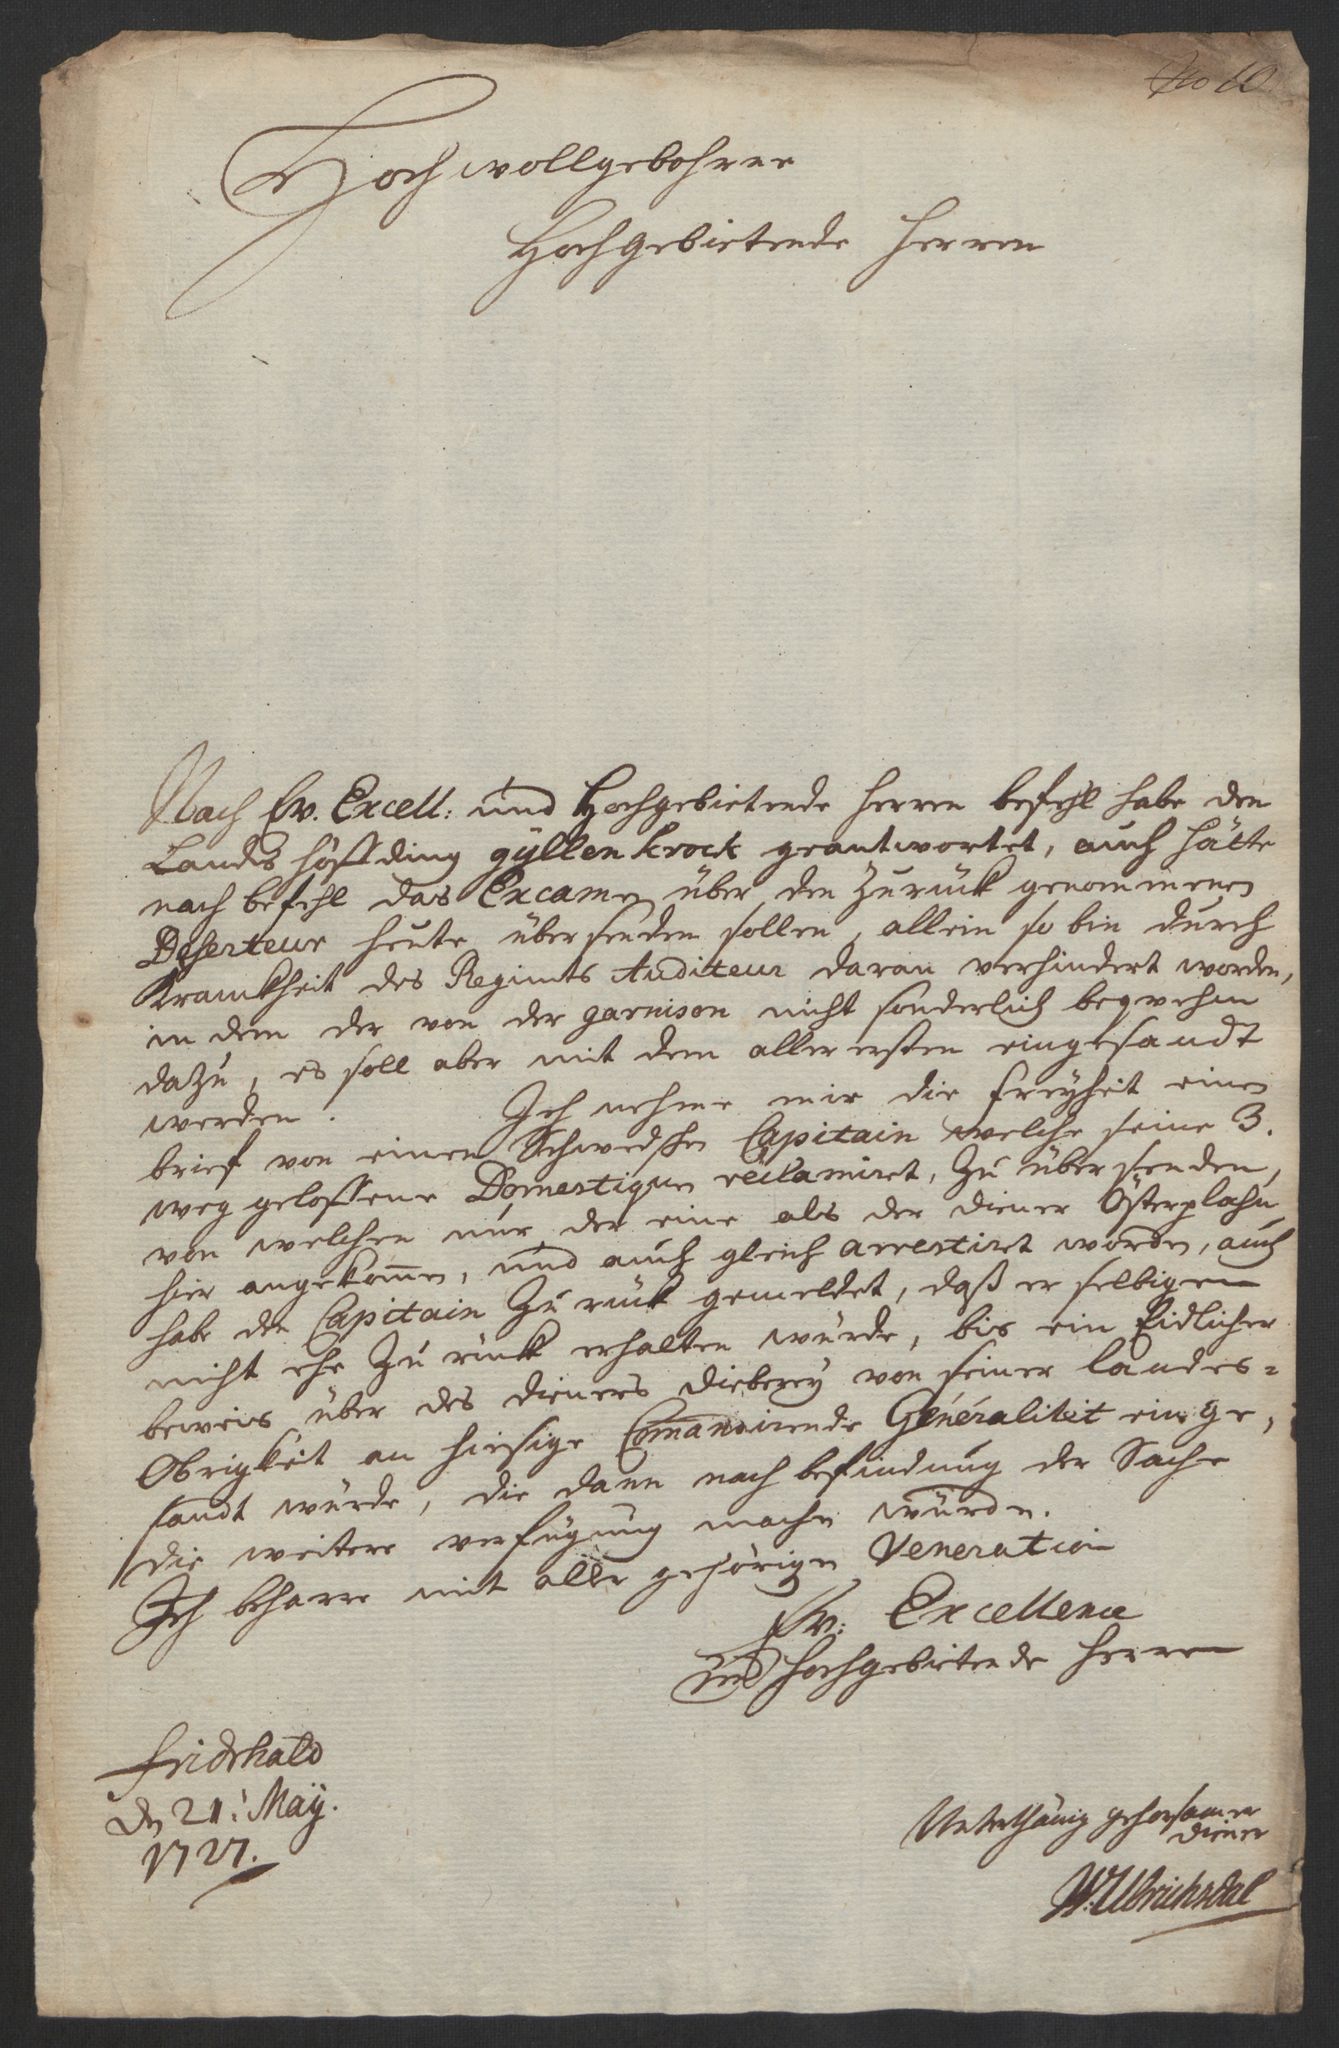 No 10
Hochwollgebohrne
Hochgebietende Herren
Nach Ew. Excell: und Hochgebietende Herren befehl habe den
Landshöffding gyllenkrock geantwortet, auch hätte
nach befehl das Examen über den Zurück genommenen
Deserteur heute übersenden sollen, allein so bin durch
Kranckheit des Regimts Auditeur daran verhindert worden,
in dem der von der garnison nicht sonderlich beqvehm
dazu, es soll aber mit dem aller ersten eingesandt
werden. Ich nehme mir die freyheit einen
brief von einen Schwedschen Capitain welche seine 3.
weg geloffene Domestiquen reclamiret, Zu übersenden,
von welchen nur der eine als der diener Österplahn
hier angekom̄en, und auch gleich arrestiret worden, auch
habe den Capitain Zurück gemeldet, daß er selbigen
nicht ehe Zurück erhalten würde, bis ein Eidlicher
beweis über des dieners dieberey von seiner landes=
Obrigkeit an hiesige Com̄andirende Generalitet einge,
sandt würde, die dann nach befindung der Sache
die weitere verfügung machen würden.
Ich beharre mit aller gehörigen Veneration
Ew: Excellence
und Hochgebietende Herren
Fridrhald
den 21: May.
1727.
Unterthänig gehorsamer
diener
W: Ulrichsdal